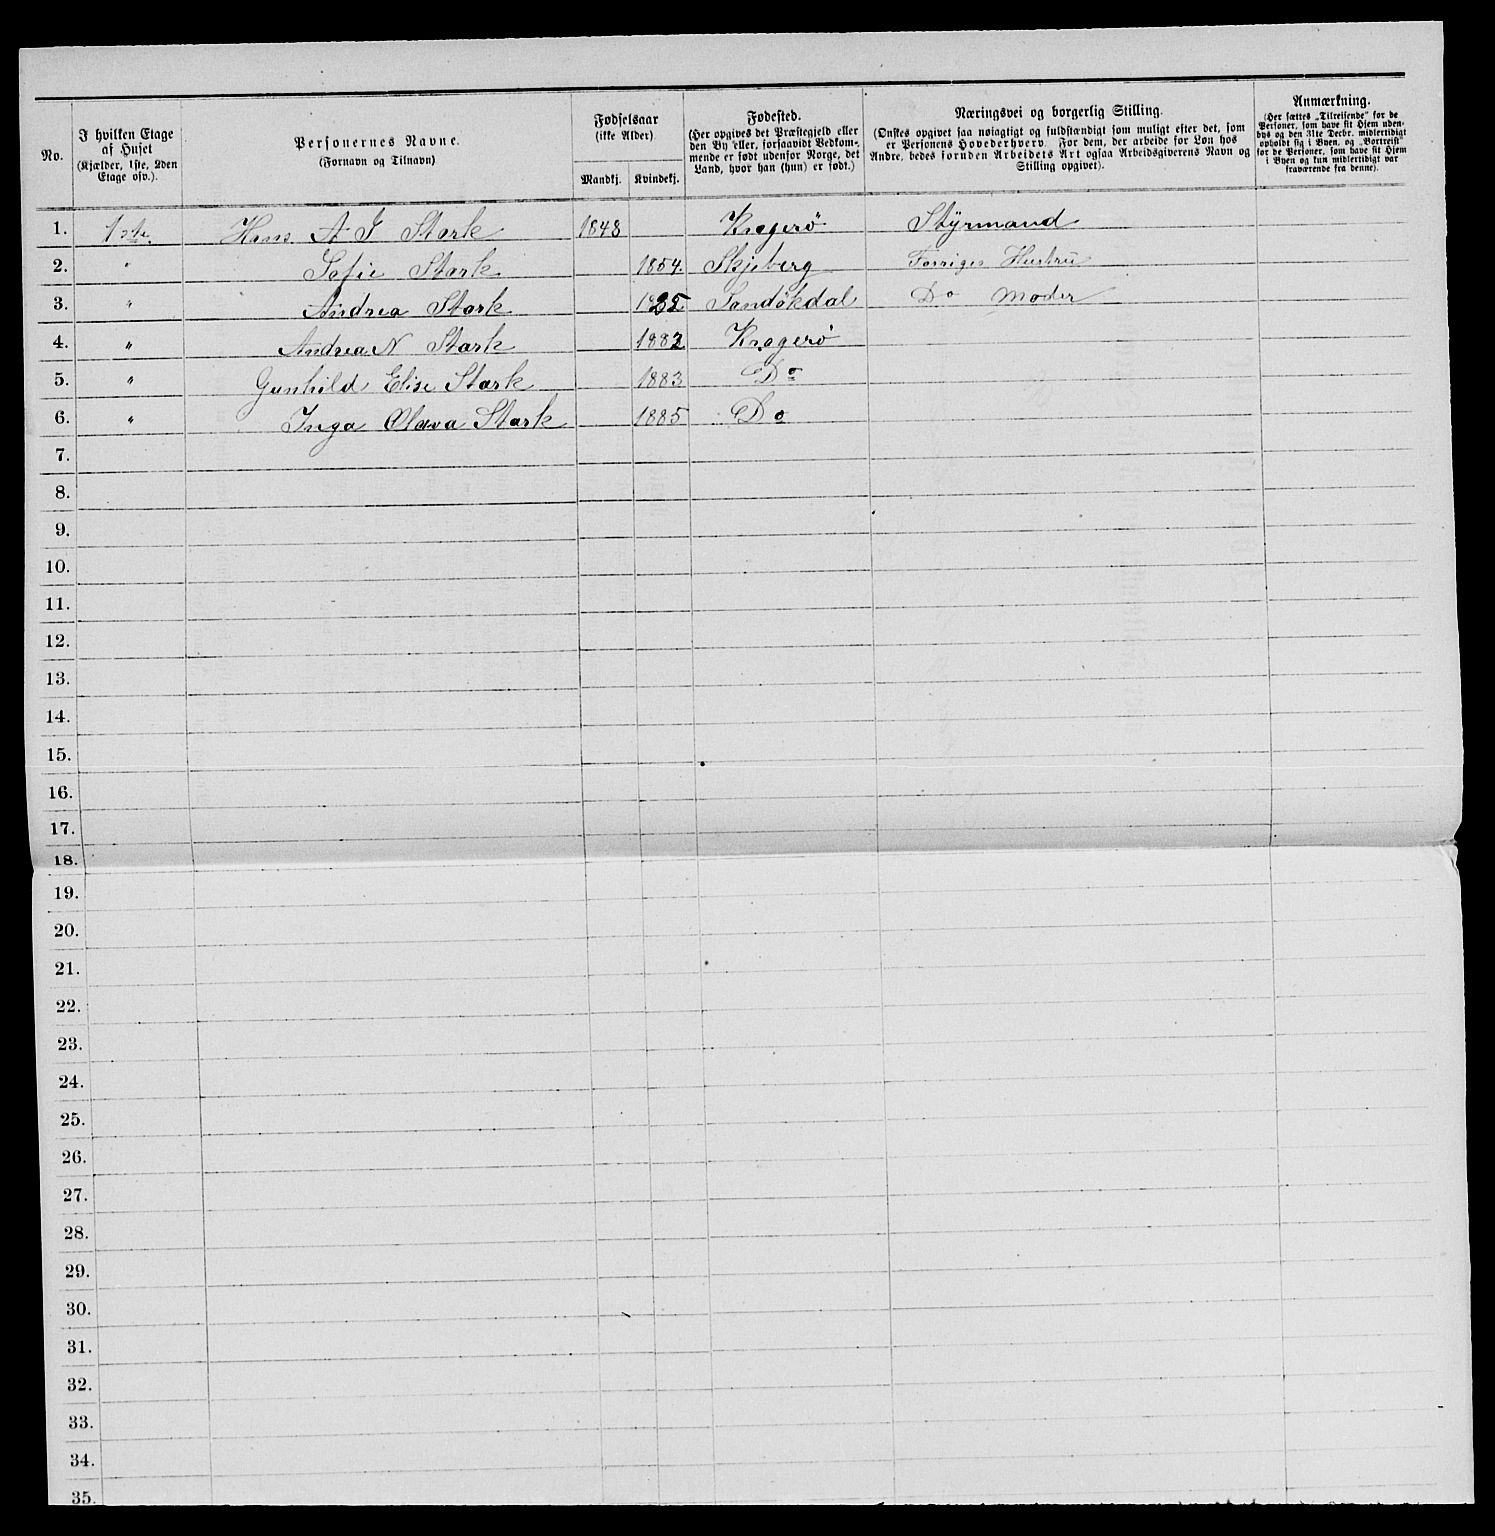 No.
I hvilken Etage af Huset
(Kjælder, 1ste, 2den Etage osv.).
Personernes Navne.
(Fornavn og Tilnavn)
Fødselsaar
(ikke Alder).
Mandkj. Kvindekj.
Fødested.
(Her opgives det Præstegjeld eller
den By eller, forsaavidt Vedkom-
mende er født udenfor Norge, det
Land, hvor han (hun) er født.)
Næringsvei og borgerlig Stilling.
(Ønskes opgivet saa nøiagtigt og fuldstændigt som muligt efter det, som
er Personens Hovederhverv. For dem, der arbeide for Løn hos
Andre, bedes foruden Arbeidets Art ogsaa Arbeidsgiverens Navn og
Stilling opgivet).
Anmærkning.
(Her sættes „Tilreisende“ for de
Personer, som have sit Hjem uden-
bys og den 31te Decbr. midlertidigt
opholdt sig i Byen, og „Bortreist“
for de Personer, som have sit Hjem
i Byen og kun midlertidigt var
fraværende fra denne).
1. 1ste Hans A J Stark 1848 Kragerö Styrmand
2. " Sofie Stark 1854. Skjeberg Forriges Hustru
3. " Andrea Stark 1825 Sandökdal Do Moder
4. " Andrea N Stark 1882 Kragerö
5. " Gunhild Elise Stark 1883 Do
6. " Inga Olava Stark 1885 Do
7.
8.
9.
10.
11.
12.
13.
14.
15.
16.
17.
18.
19.
20.
21.
22.
23.
24.
25.
26.
27.
28.
29.
30.
31.
32.
33.
34.
35.